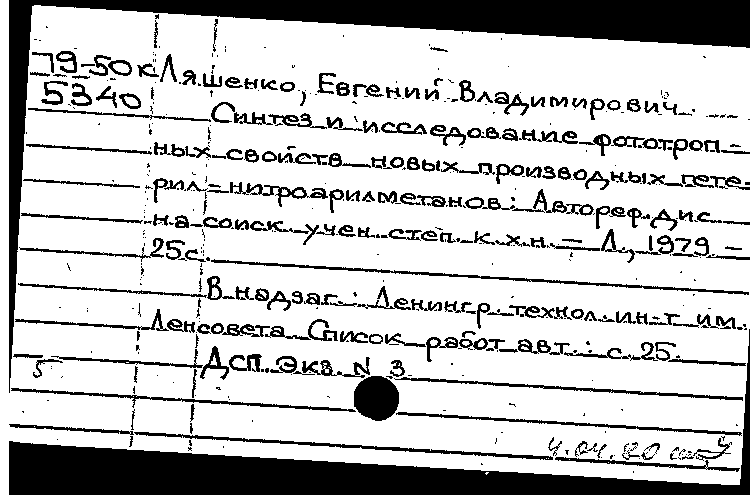 79-50к Ляшенко, Евгений Владимирович.
5340
Синтез и исследование фототроп-
ных свойств новых производных гете-
рил-нитроарилметанов: Автореф. дис.
на соиск. учен. степ. к.х.н. - Л., 1979 -
25с.
В надзаг.: Ленингр. технол. ин-т им.
Ленсовета. Список работ авт.: с. 25.
ДСП. Экз. N 3
5
4.04.80